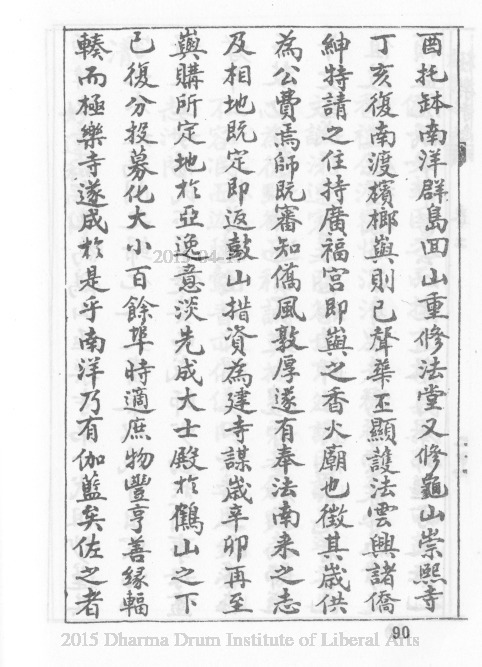 酉托缽南洋群島回山重修法堂又修龜山崇熙寺
丁亥復南渡檳榔嶼則已聲華丕顯護法雲興諸僑
紳特請之住持廣福宮即嶼之香火廟也徵其歲供
為公費焉師既審知僑風敦厚遂有奉法南来之志
及相地既定即返鼓山措資為建寺謀歲辛卯再至
嶼購所定地扵亞逸意淡先成大士殿扵鶴山之下
已復分投募化大小百餘埠時適庶物豐亨善緣輻
輳而極樂寺遂成扵是乎南洋乃有伽藍矣佐之者
2015-04-1
90
2015 Dharma Drum Institute of Liberal Arts